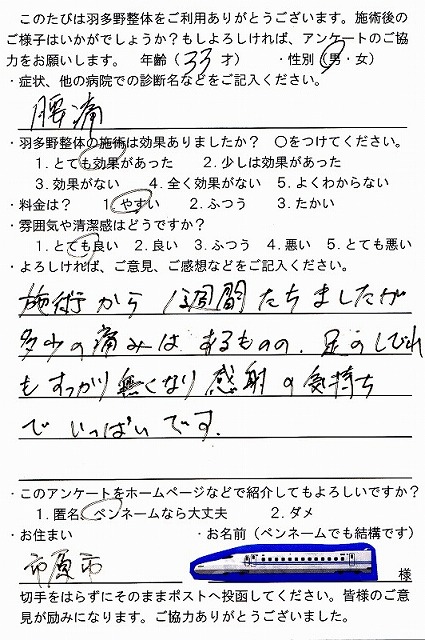 このたびは羽多野整体をご利用ありがとうございます。施術後の
ご様子はいかがでしょうか？もしよろしければ、アンケートのご協
力をお願いします。　年齢（33才）　・性別（男・女）
・症状、他の病院での診断名などをご記入ください。
腰痛
・羽多野整体の施術は効果ありましたか？　〇をつけてください。
1. とても効果があった　2. 少しは効果があった
3. 効果がない　4. 全く効果がない　5. よくわからない
・料金は？　1. やすい　2. ふつう　3. たかい
・雰囲気や清潔感はどうですか？
1. とても良い　2. 良い　3. ふつう　4. 悪い　5. とても悪い
・よろしければ、ご意見、ご感想などをご記入ください。
施術から1週間たちましたが
多少の痛みはあるものの、足のしびれ
もすっかり無くなり感射の気持ち
でいっぱいです.
・このアンケートをホームページなどで紹介してもよろしいですか？
1. 匿名、ペンネームなら大丈夫　2. ダメ
・お住まい　・お名前（ペンネームでも結構です）
市原市　様
切手をはらずにそのままポストへ投函してください。皆様のご意
見が励みになります。ご協力ありがとうございました。